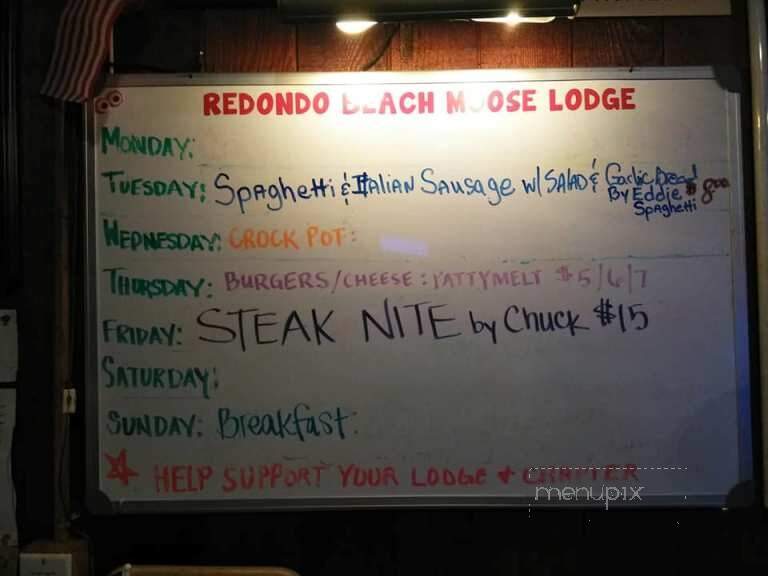 REDONDO BEACH MOOSE LODGE
MONDAY:
TUESDAY: Spaghetti & Italian Sausage w/ SALAD & Garlic Bread
By Eddie $8.00
Spaghetti
WEDNESDAY: CROCK POT:
THURSDAY: BURGERS/CHEESE: PATTYMELT $5/6/7
FRIDAY: STEAK NITE by Chuck $15
SATURDAY:
SUNDAY: Breakfast:
HELP SUPPORT YOUR LODGE + CHAPTER
menupix